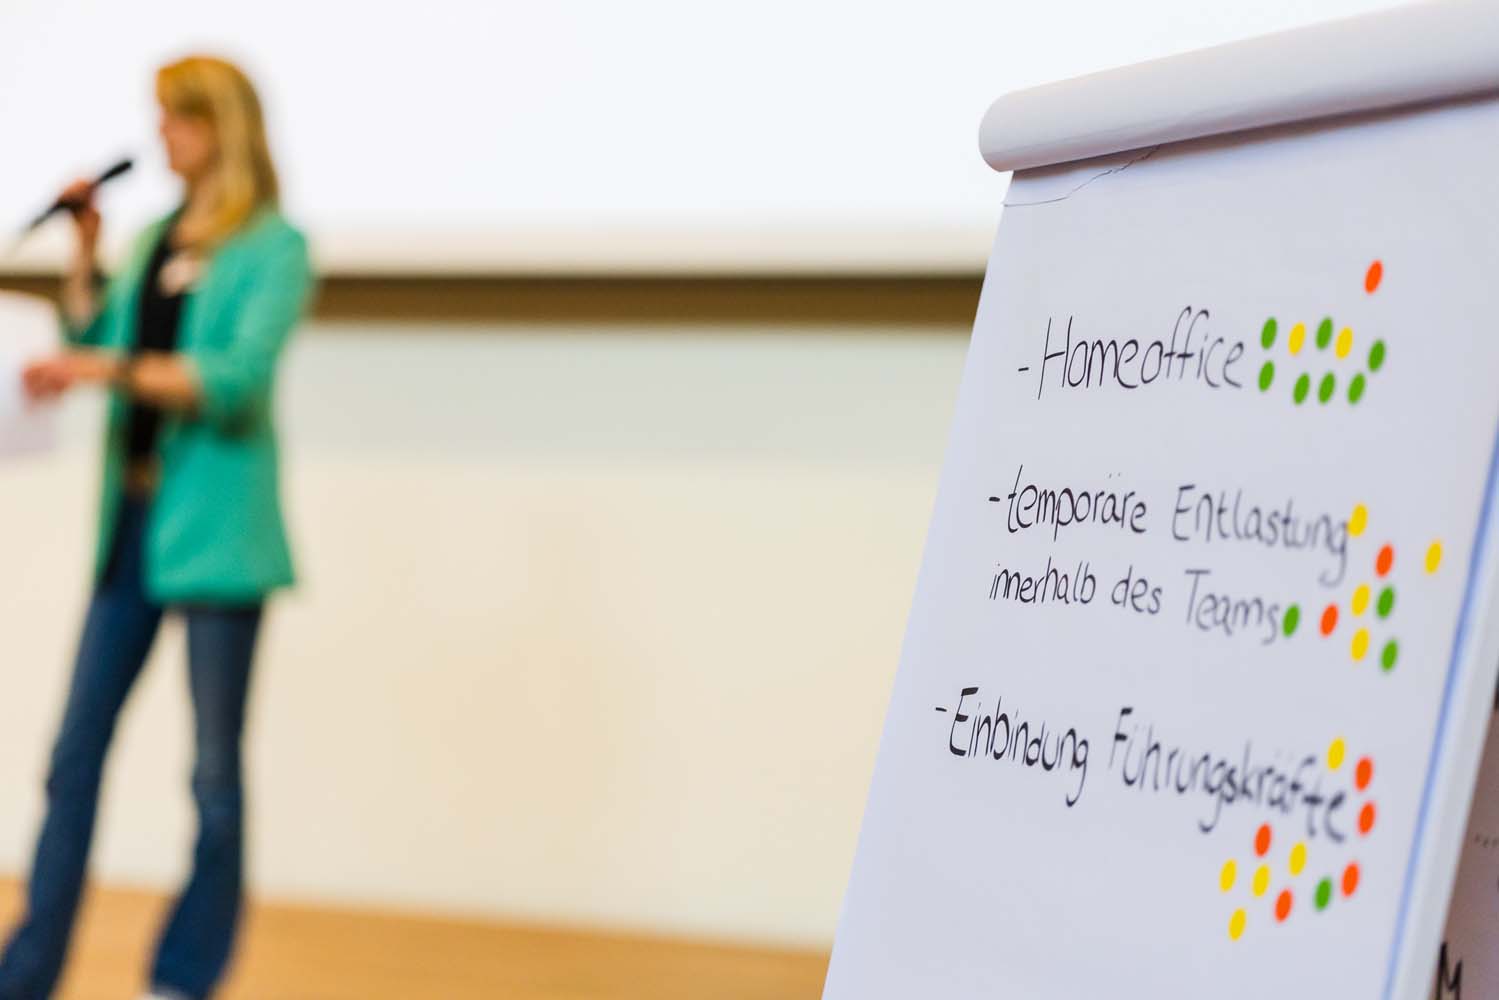 - Homeoffice
- temporäre Entlastung
innerhalb des Teams
- Einbindung Führungskräfte
M